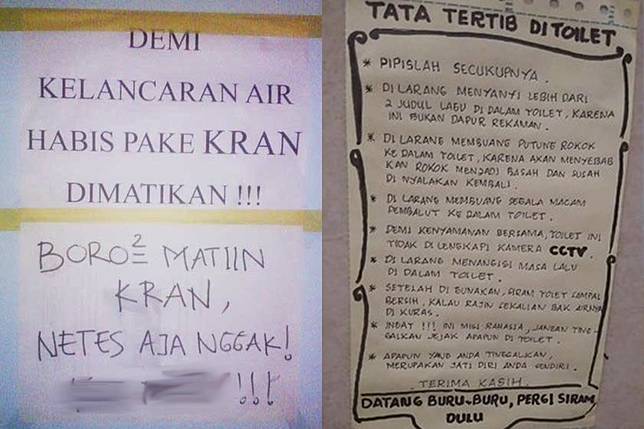 DEMI
KELANCARAN AIR
HABIS PAKE KRAN
DIMATIKAN !!!
BORO² MATIIN
KRAN,
NETES AJA NGGAK!
!!!
TATA TERTIB DI TOILET
* PIPISLAH SECUKUPNYA.
* DI LARANG MENYANYI LEBIH DARI
2 JUDUL LAGU DI DALAM TOILET, KARENA
INI BUKAN DAPUR REKAMAN.
* DI LARANG MEMBUANG PUTUNG ROKOK
KE DALAM TOILET, KARENA AKAN MENYEBAB
KAN ROKOK MENJADI BASAH DAN SUSAH
DI NYALAKAN KEMBALI.
* DI LARANG MEMBUANG SEGALA MACAM
PEMBALUT KE DALAM TOILET.
* DEMI KENYAMANAN BERSAMA, TOILET INI
TIDAK DI LENGKAPI KAMERA CCTV.
* DI LARANG MENANGISI MASA LALU
DI DALAM TOILET.
* SETELAH DI GUNAKAN, SIRAM TOILET SAMPAI
BERSIH, KALAU RAJIN SEKALIAN BAK AIRNYA
DI KURAS.
* INGAT !!! INI MISI RAHASIA, JANGAN TING-
GALKAN JEJAK APAPUN DI TOILET.
* APAPUN YANG ANDA TINGGALKAN,
MERUPAKAN JATI DIRI ANDA SENDIRI.
TERIMA KASIH.
DATANG BURU-BURU, PERGI SIRAM
DULU